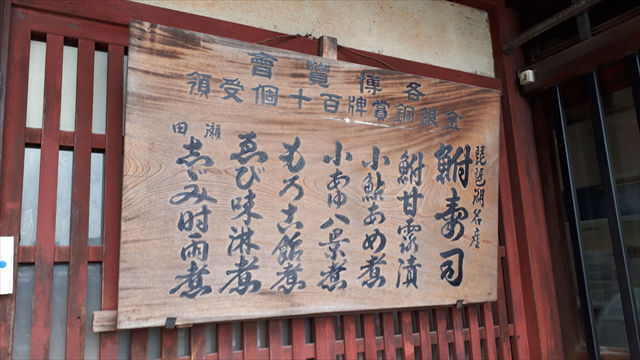 各博覧會
金銀銅賞牌百十個受領
琵琶湖名産
鮒寿司
鮒甘露漬
小鮎あめ煮
小あゆ八景煮
もろこ飴煮
ゑび味淋煮
瀬田
志ゞみ時雨煮